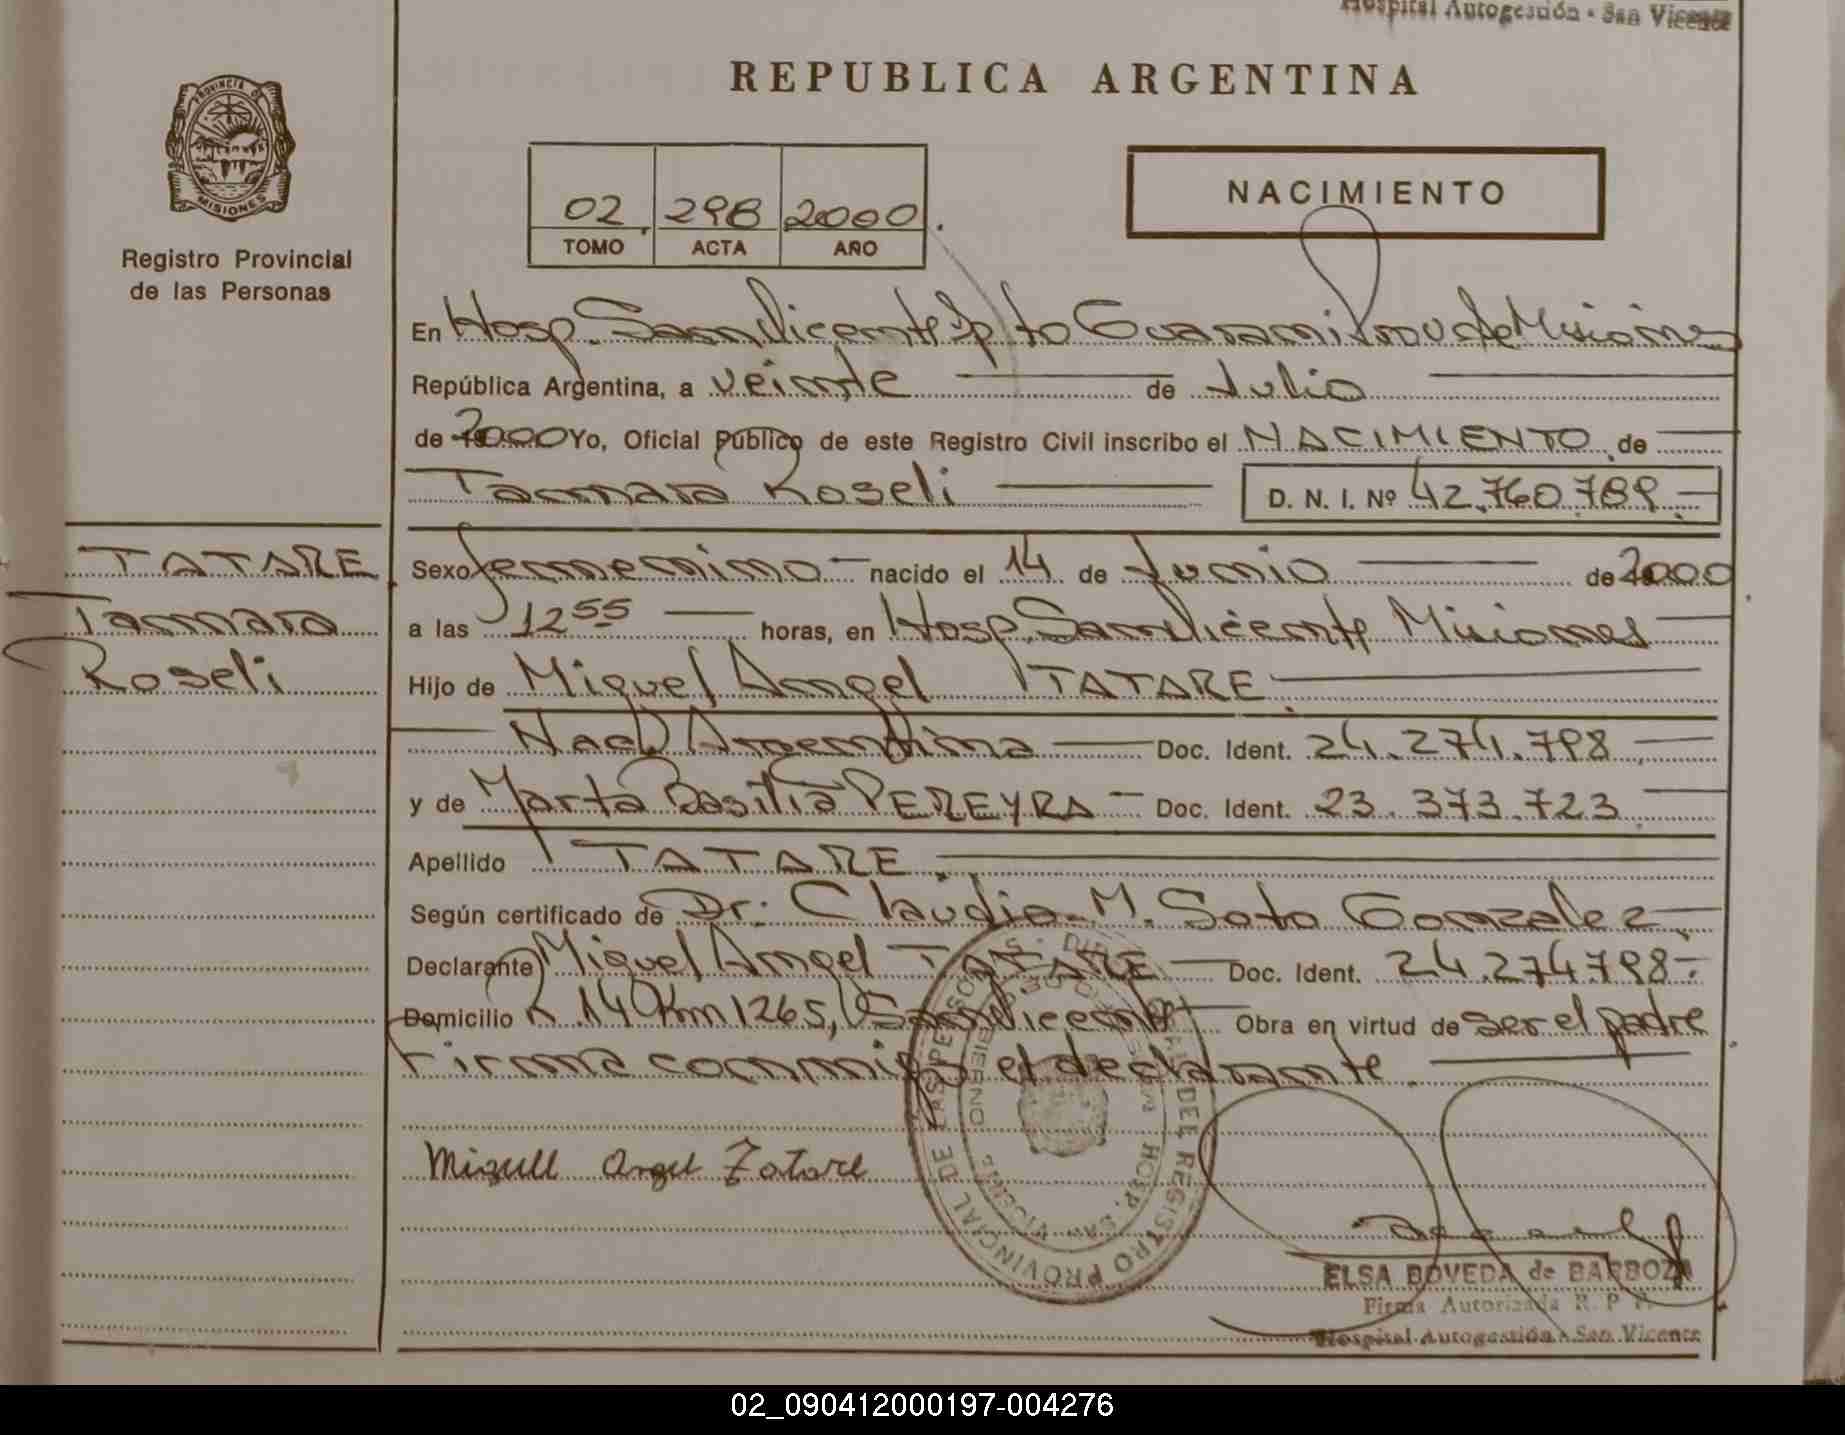 Hospital Autogestión - San Vicente
REPUBLICA ARGENTINA
PROVINCIA DE
MISIONES
Registro Provincial
de las Personas
02 298 2000
TOMO ACTA AÑO
NACIMIENTO
En Hosp. San Vicente Dpto Guarani Prov de Misiones
República Argentina, a veinte de Julio
de 2000 Yo, Oficial Público de este Registro Civil inscribo el NACIMIENTO de
Tamara Roseli D. N. I. Nº 42.760.789.-
TATARE
Tamara
Roseli
Sexo femenino nacido el 14 de Junio de 2000
a las 12 55 horas, en Hosp. San Vicente Misiones
Hijo de Miguel Angel TATARE
Nac. Argentina Doc. Ident. 24.274.798
y de Marta Basilia PEREYRA Doc. Ident. 23.373.723
Apellido TATARE
Según certificado de Dr. Claudio M. Soto Gonzalez
Declarante Miguel Angel TATARE Doc. Ident. 24.274.798.-
Domicilio R. 14 Km 1265, San Vicente Obra en virtud de ser el padre
Firma conmigo el declarante.
Miguel Angel Tatare
PROVINCIAL DE LAS PERSONAS
DEL REGISTRO
HOSP. SAN VICENTE
ELSA BOVEDA de BARBOZA
Firma Autorizada R. P. P.
Hospital Autogestión - San Vicente
02_090412000197-004276